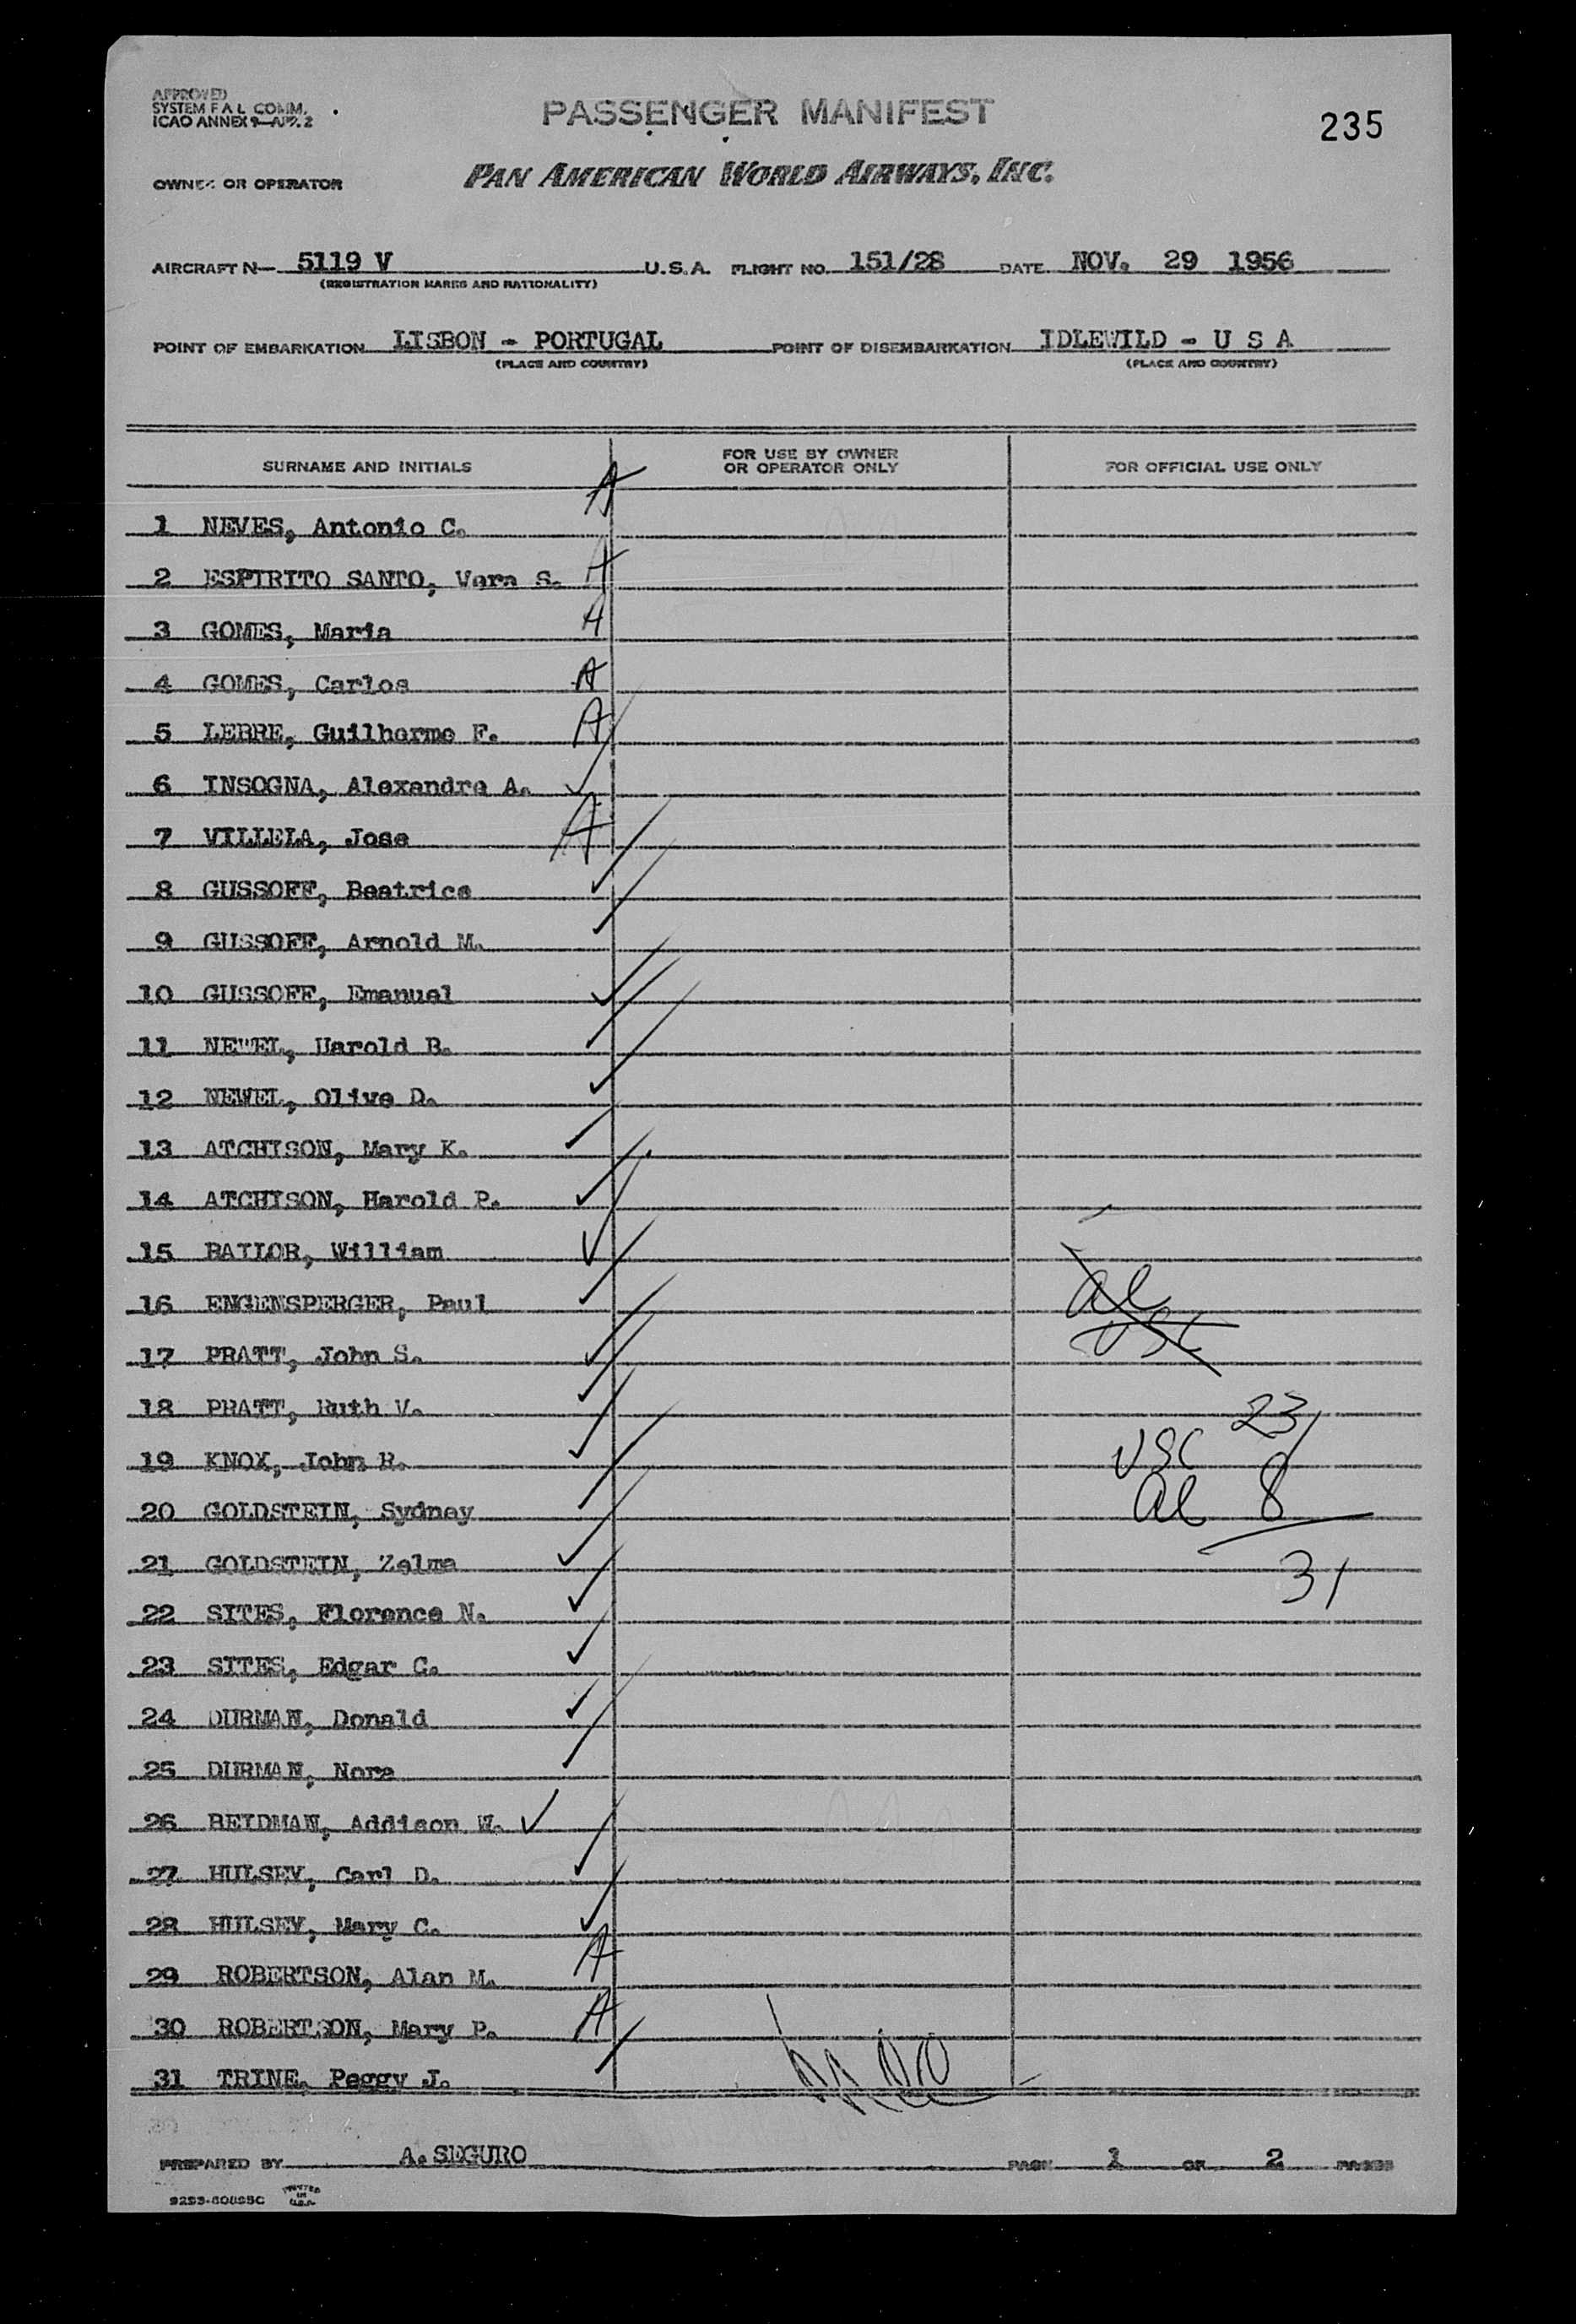 APPROVED
SYSTEM F A L COMM.
ICAO ANNEX 9—APP. 2
PASSENGER MANIFEST
235
OWNER OR OPERATOR PAN AMERICAN WORLD AIRWAYS, INC.
AIRCRAFT N— 5119 V U.S.A. FLIGHT NO. 151/28 DATE NOV. 29 1956
(REGISTRATION MARKS AND NATIONALITY)
POINT OF EMBARKATION LISBON - PORTUGAL POINT OF DISEMBARKATION IDLEWILD - U S A
(PLACE AND COUNTRY) (PLACE AND COUNTRY)
SURNAME AND INITIALS FOR USE BY OWNER OR OPERATOR ONLY FOR OFFICIAL USE ONLY
1 NEVES, Antonio C. A
2 ESPIRITO SANTO, Vera S. A
3 GOMES, Maria A
4 GOMES, Carlos A
5 LEBRE, Guilherme F. A
6 INSOGNA, Alexandre A. ✓
7 VILLELA, Jose A
8 GUSSOFF, Beatrice ✓
9 GUSSOFF, Arnold M. ✓
10 GUSSOFF, Emanuel ✓
11 NEWEL, Harold B. ✓
12 NEWEL, Olive D. ✓
13 ATCHISON, Mary K. ✓
14 ATCHISON, Harold P. ✓
15 BATLOR, William ✓
16 ENGENSPERGER, Paul ✓ al
17 PRATT, John S. ✓ USC
18 PRATT, Ruth V. ✓ 23
19 KNOX, John R. ✓ USC
20 GOLDSTEIN, Sydney ✓ al 8
21 GOLDSTEIN, Zelma ✓ 31
22 SITES, Florence N. ✓
23 SITES, Edgar C. ✓
24 DURMAN, Donald ✓
25 DURMAN, Nora ✓
26 REIDMAN, Addison W. ✓
27 HULSEY, Carl D. ✓
28 HULSEY, Mary C. ✓
29 ROBERTSON, Alan M. A
30 ROBERTSON, Mary P. A
31 TRINE, Peggy J. ✓
PREPARED BY A. SEGURO PAGE 1 OF 2 PAGES
PRINTED IN U.S.A.